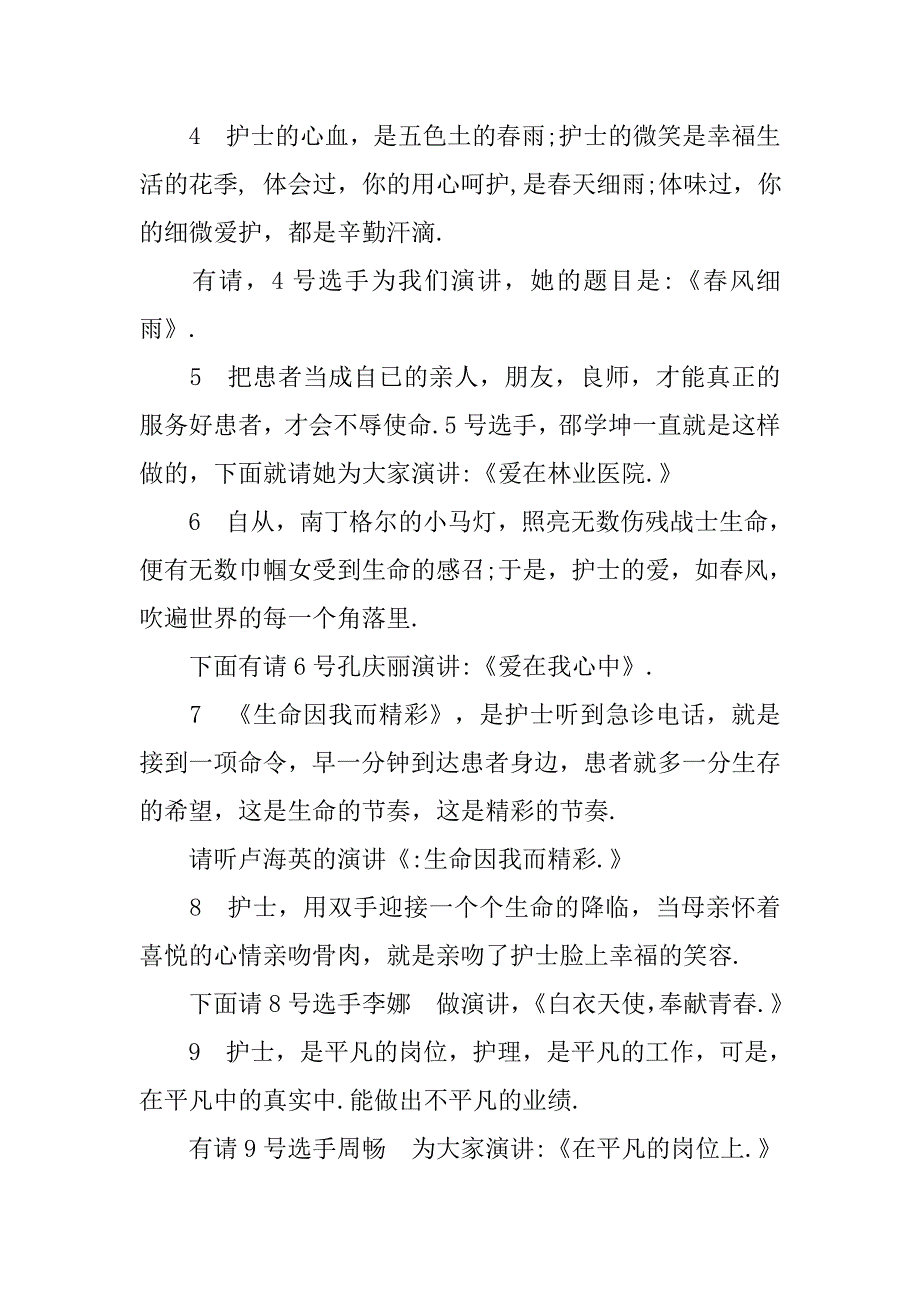 4　护士的心血，是五色土的春雨;护士的微笑是幸福生
活的花季, 体会过，你的用心呵护,是春天细雨;体味过，你
的细微爱护，都是辛勤汗滴.
有请，4号选手为我们演讲，她的题目是:《春风细
雨》.
5　把患者当成自已的亲人，朋友，良师，才能真正的
服务好患者，才会不辱使命.5号选手，邵学坤一直就是这样
做的，下面就请她为大家演讲:《爱在林业医院.》
6　自从，南丁格尔的小马灯，照亮无数伤残战士生命，
便有无数巾帼女受到生命的感召;于是，护士的爱，如春风，
吹遍世界的每一个角落里.
下面有请6号孔庆丽演讲:《爱在我心中》.
7　《生命因我而精彩》，是护士听到急诊电话，就是
接到一项命令，早一分钟到达患者身边，患者就多一分生存
的希望，这是生命的节奏，这是精彩的节奏.
请听卢海英的演讲《:生命因我而精彩.》
8　护士，用双手迎接一个个生命的降临，当母亲怀着
喜悦的心情亲吻骨肉，就是亲吻了护士脸上幸福的笑容.
下面请8号选手李娜　做演讲，《白衣天使，奉献青春.》
9　护士，是平凡的岗位，护理，是平凡的工作，可是，
在平凡中的真实中.能做出不平凡的业绩.
有请9号选手周畅　为大家演讲:《在平凡的岗位上.》